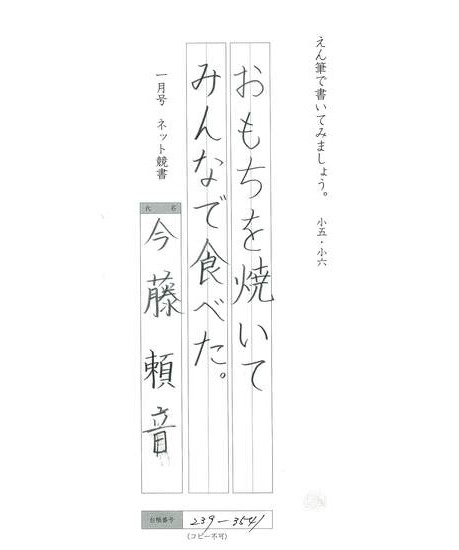 えん筆で書いてみましょう。 小五・小六
おもちを焼いて
みんなで食べた。
一月号 ネット競書
氏名
今藤頼音
台帳番号 239-3541
(コピー不可)